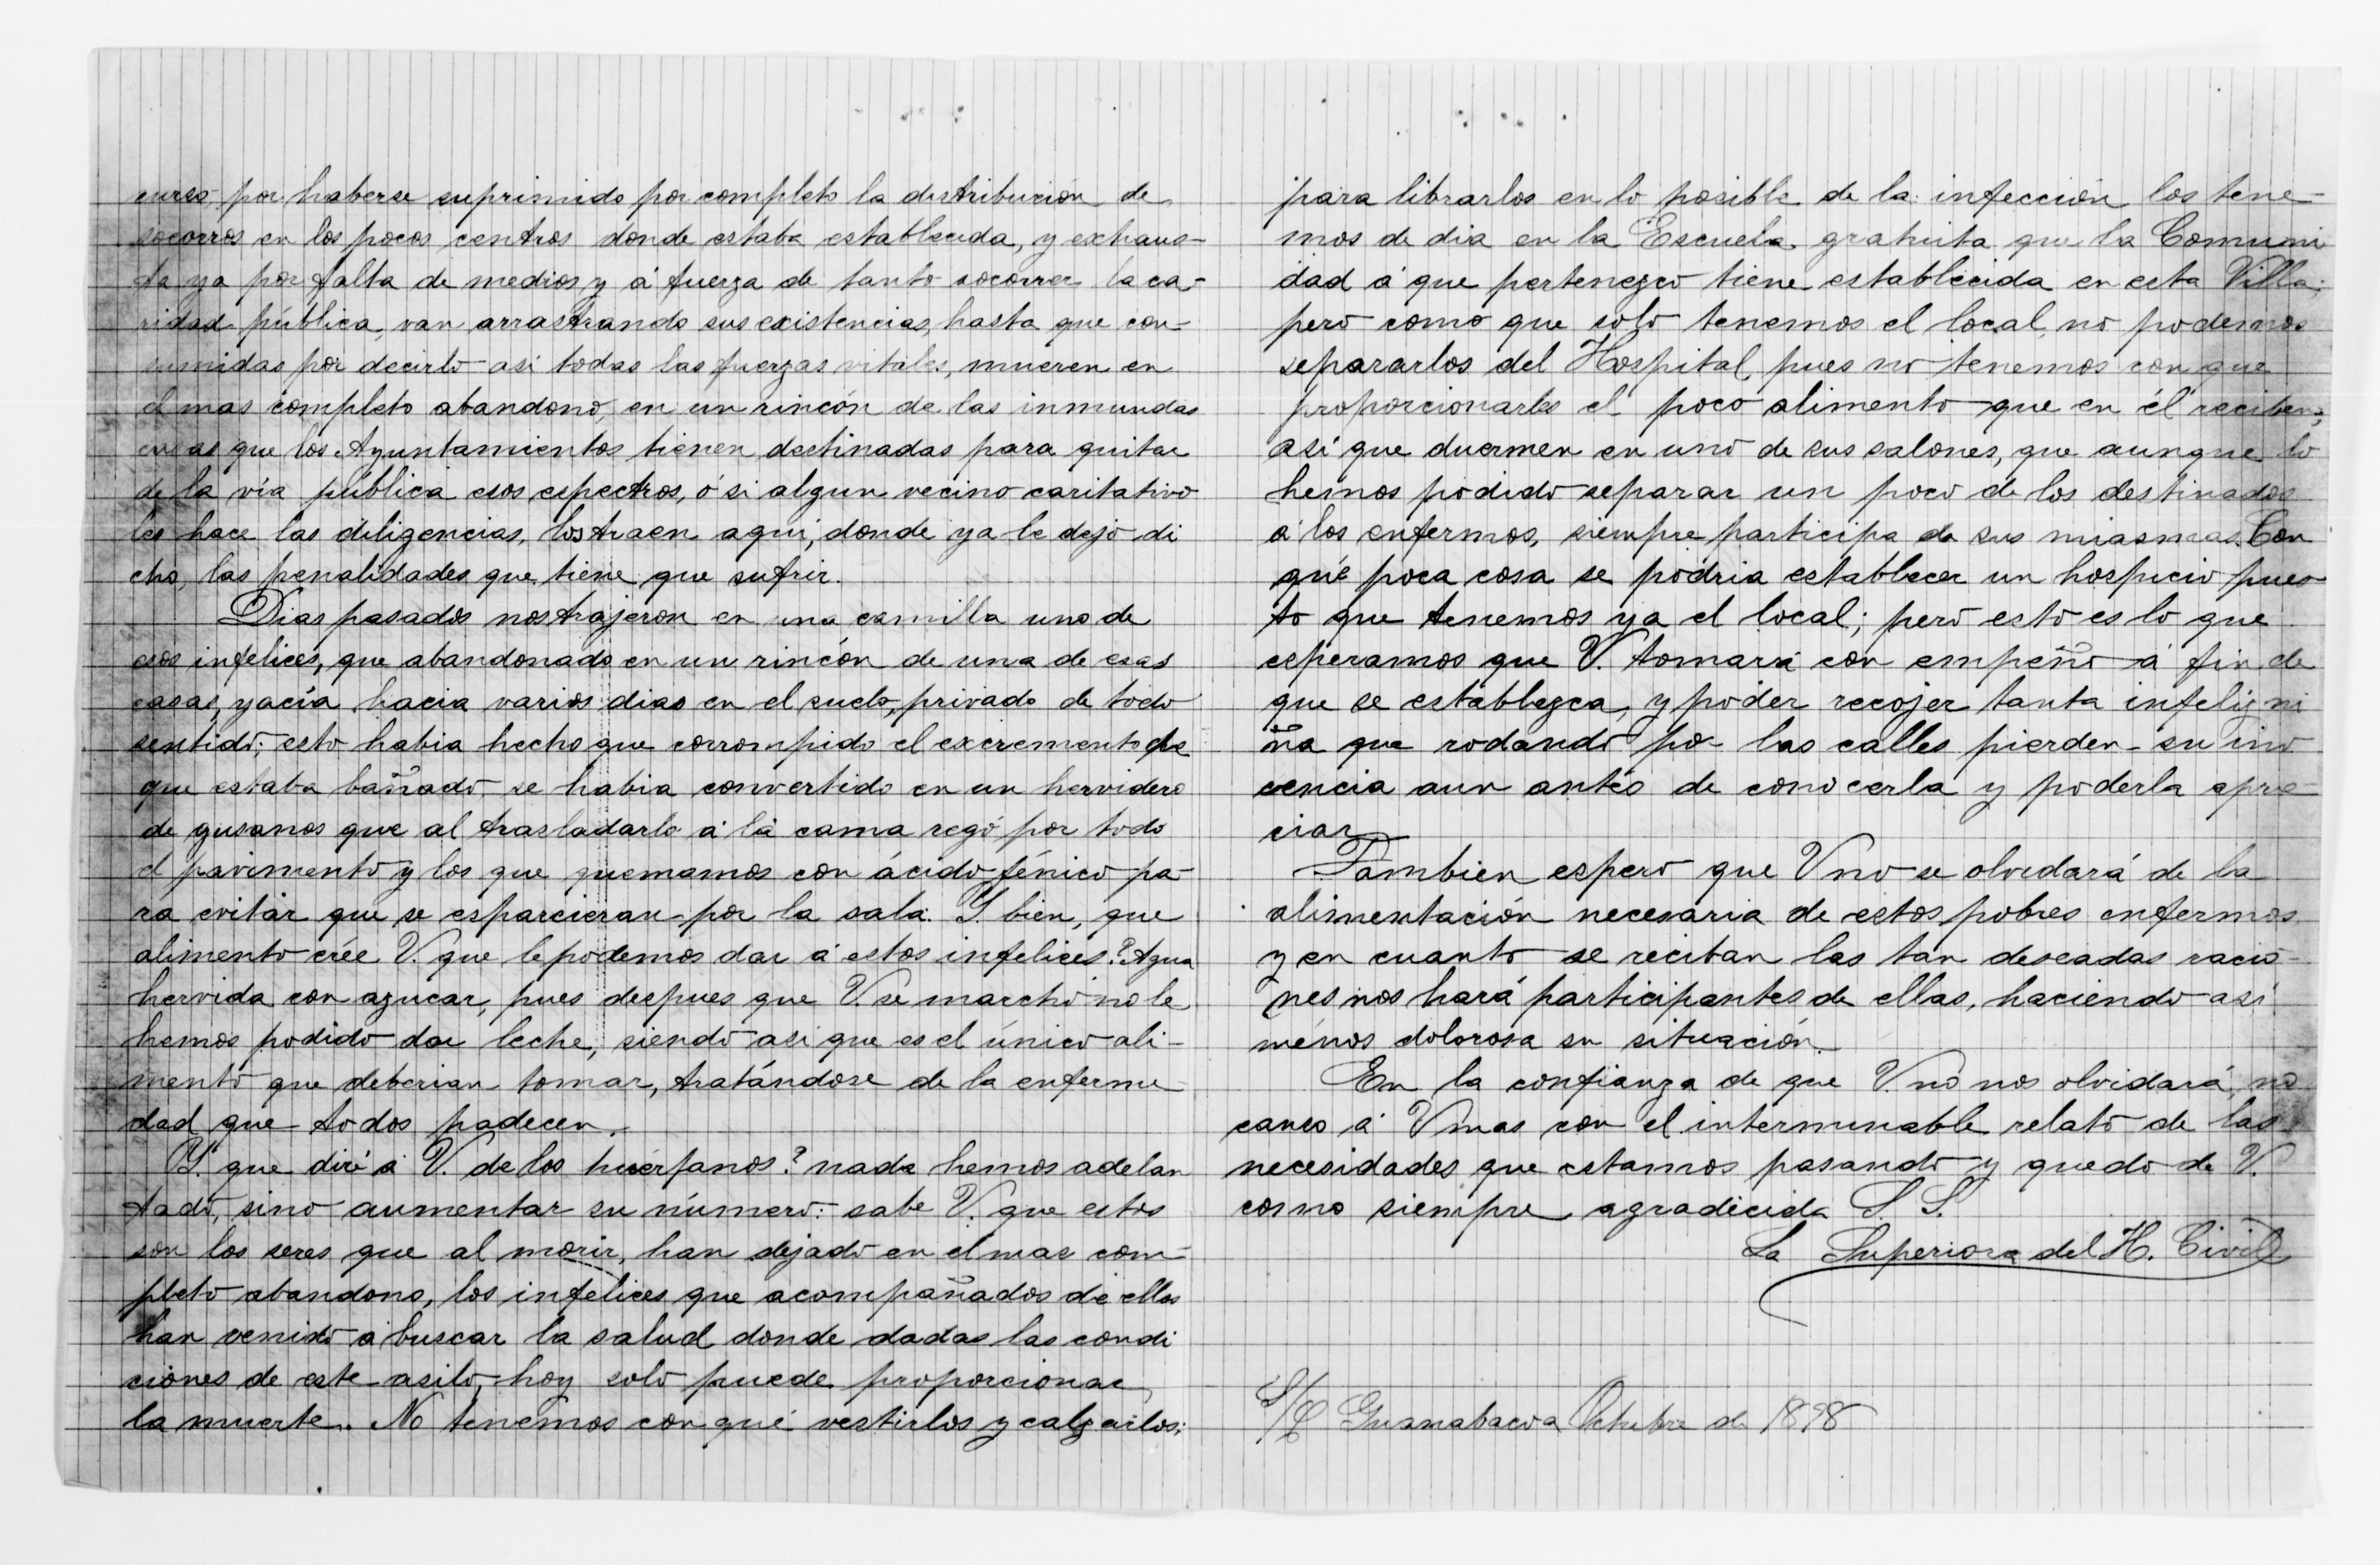 curso, por haberse suprimido por completo la distribución de
socorros en los pocos centros donde estaba establecida, y exhaus-
ta ya por falta de medios y á fuerza de tanto socorrer la ca-
ridad pública, van arrastrando sus existencias, hasta que con-
sumidas por decirlo asi todas las fuerzas vitales, mueren en
el mas completo abandono, en un rincón de las inmundas
casas que los Ayuntamientos tienen destinadas para quitar
de la vía pública esos espectros, ó si algun vecino caritativo
les hace las diligencias, los traen aqui, donde ya le dejo di
cho, las penalidades que tiene que sufrir.
Dias pasados nos trajeron en una camilla uno de
esos infelices, que abandonado en un rincón de una de esas
casas, yacía hacia varios dias en el suelo, privado de todo
sentido; esto habia hecho que corrompido el excremento de
que estaba bañado, se habia convertido en un hervidero
de gusanos que al trasladarlo á la cama regó por todo
el pavimento y los que quemamos con ácido fénico pa-
ra evitar que se esparcieran por la sala. Y bien, que
alimento crée V. que le podemos dar á estos infelices? Agua
hervida con azucar, pues despues que V. se marchó no le
hemos podido dar leche, siendo asi que es el único ali-
mento que deberian tomar, tratándose de la enferme-
dad que todos padecen.
Y que diré á V. de los huérfanos? nada hemos adelan
tado, sino aumentar su número: sabe V. que estos
son los seres que al morir, han dejado en el mas com-
pleto abandono, los infelices que acompañados de ellos
han venido á buscar la salud donde dadas las condi
ciones de este asilo, hoy solo puede proporcionar
la muerte. No tenemos con qué vestirlos y calzarlos;
para librarlos en lo posible de la infección los tene-
mos de dia en la Escuela gratuita que la Comuni
dad á que pertenezco tiene establecida en esta Villa;
pero como que solo tenemos el local, no podemos
separarlos del Hospital, pues no tenemos con que
proporcionarles el poco alimento que en él reciben;
así que duermen en uno de sus salones, que aunque lo
hemos podido separar un poco de los destinados
á los enfermos, siempre participa de sus miasmas. Con
qué poca cosa se podria establecer un hospicio pues-
to que tenemos ya el local; pero esto es lo que
esperamos que V. tomará con empeño á fin de
que se establezca, y poder recojer tanta infeliz ni
ña que rodando por las calles pierden su ino
cencia aun antes de conocerla y poderla apre-
ciar.
Tambien espero que V no se olvidará de la
alimentación necesaria de estos pobres enfermos
y en cuanto se reciban las tan deseadas racio-
nes nos hará participantes de ellas, haciendo asi
ménos dolorosa su situación.
En la confianza de que V. no nos olvidará, no
canso á V mas con el interminable relato de las
necesidades que estamos pasando y quedo de V.
como siempre agradecida S. S.
La Superiora del H. Civil
S/C Guanabacoa Octubre de 1898